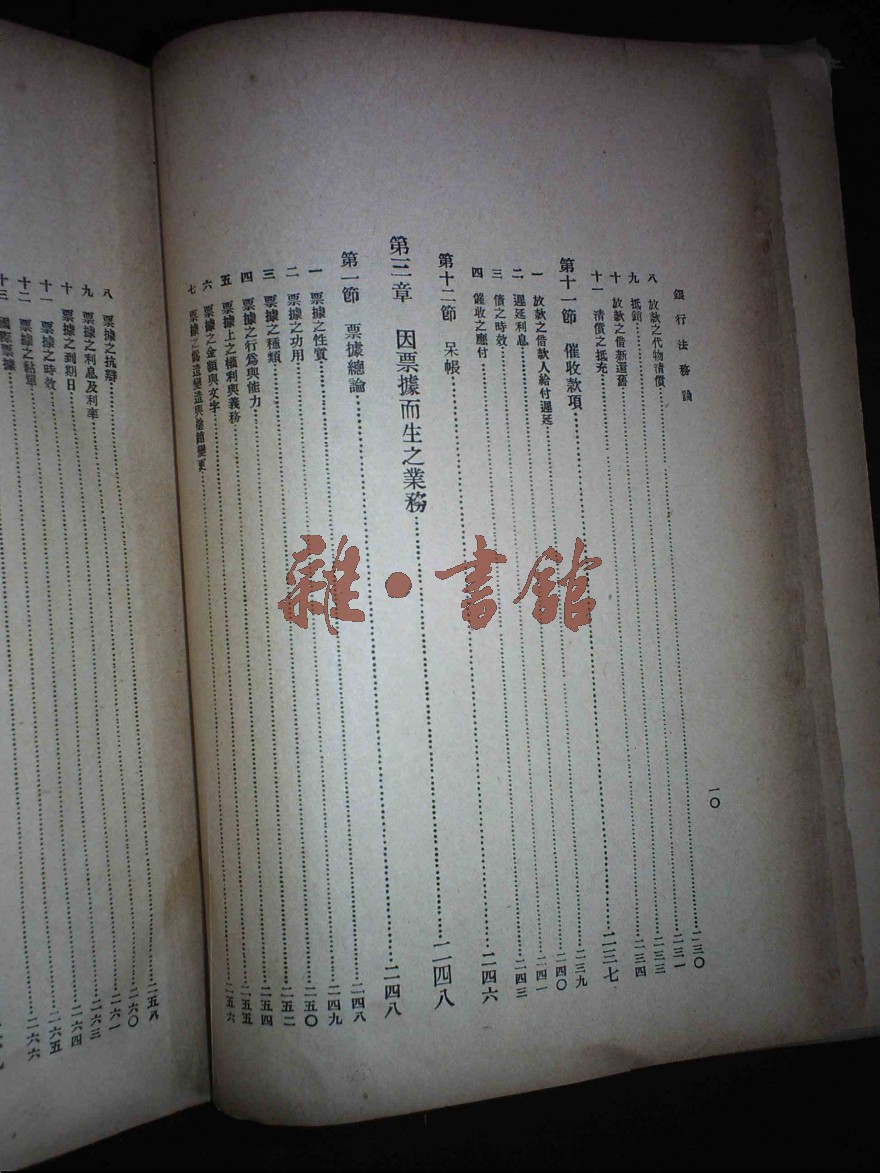 銀行法務論 一〇
八 放款之代物清償……二三〇
九 抵銷……二三一
十 放款之借新還舊……二三三
十一 清償之抵充……二三四
第十一節 催收款項……二三七
一 放款之借款人給付遲延……二三九
二 遲延利息……二四〇
三 債之時效……二四一
四 催收之應付……二四三
第十二節 呆帳……二四六
第三章 因票據而生之業務……二四八
第一節 票據總論……二四八
一 票據之性質……二四八
二 票據之功用……二四九
三 票據之種類……二五〇
四 票據之行爲與能力……二五二
五 票據上之權利與義務……二五四
六 票據之金額與文字……二五五
七 票據之僞造變造與塗銷變更……二五六
八 票據之抗辯……二五八
九 票據之利息及利率……二六〇
十 票據之到期日……二六一
十一 票據之時效……二六三
十二 票據之黏單……二六四
十三 國際票據……二六五
二六六
雜·書館